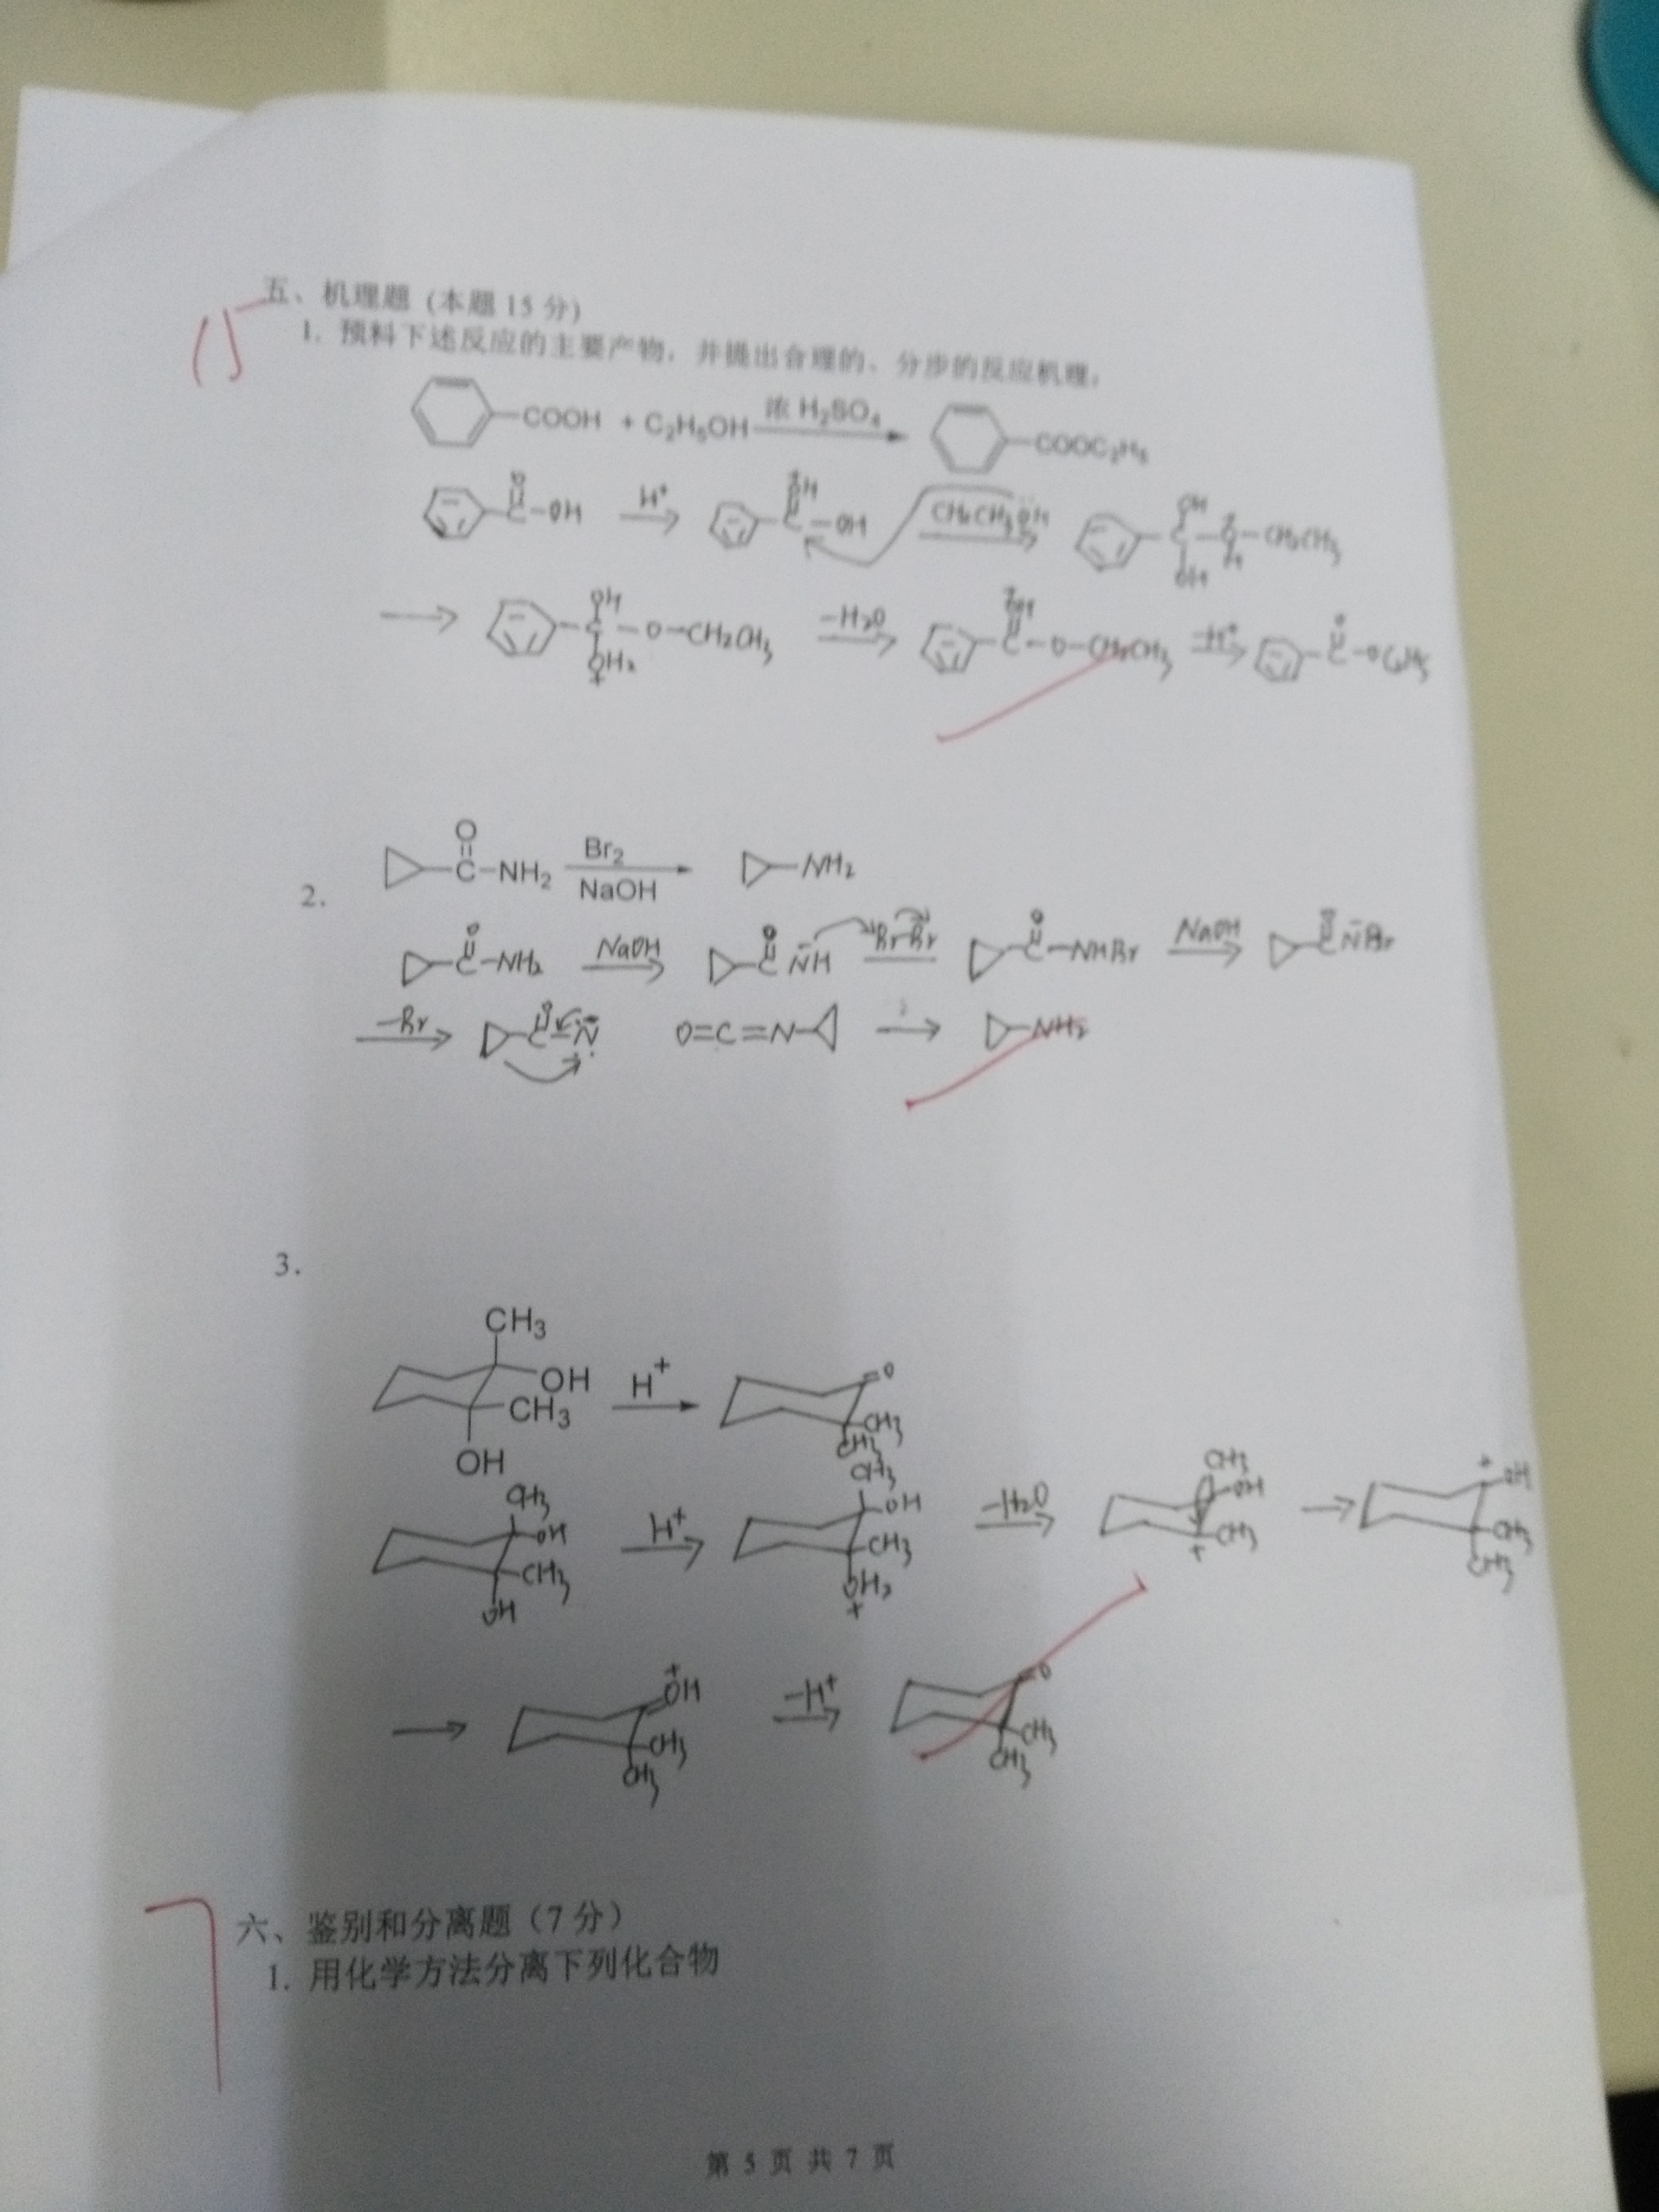 五、机理题 (本题 15 分)
15
1. 预料下述反应的主要产物，并提出合理的、分步的反应机理。
COOH + C₂H₅OH 浓 H₂SO₄ COOC₂H₅
O C-OH H⁺ ⁺OH C-OH CH₃CH₂ÖH OH C O⁺ H CH₂CH₃ OH
OH C-O-CH₂CH₃ OH₂ + -H₂O ⁺OH C-O-CH₂CH₃ -H⁺ O C-OC₂H₅
2. O C-NH₂ Br₂ NaOH NH₂
O C-NH₂ NaOH O C N̄H Br-Br O C-NHBr NaOH O C N̄Br
-Br O C-N̈ O=C=N NH₂
3.
CH₃ OH CH₃ OH H⁺ O CH₃ CH₃
CH₃ OH CH₃ OH H⁺ CH₃ OH CH₃ OH₂ + -H₂O CH₃ OH CH₃ + + OH CH₃ CH₃
⁺OH CH₃ CH₃ -H⁺ O CH₃ CH₃
7
六、鉴别和分离题（7 分）
1. 用化学方法分离下列化合物
第 5 页 共 7 页